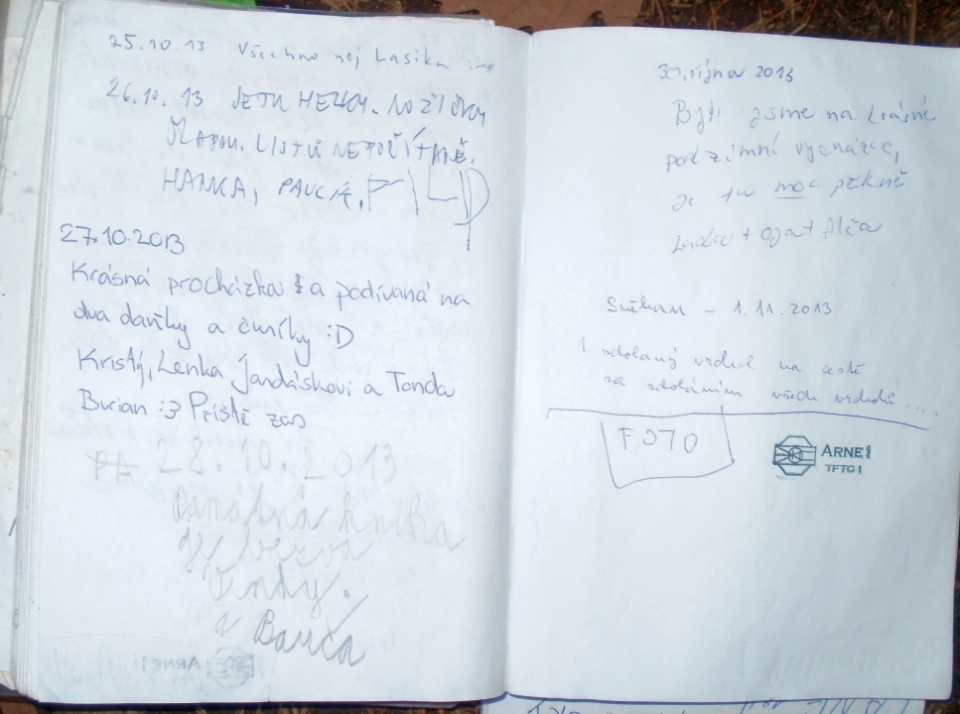 25.10.13 Všechno nej Lasika
26.10.13 JE TU HEZKY. NOŽIČKY
ŠLAPOU. LISTŮ NEPOČÍTANĚ.
HANKA, PAVLÍK, FILIP
27.10.2013
Krásná procházka a podívaná na
dva daňky a čuníky :D
Kristý, Lenka Jandáskovi a Tonda
Burian :3 Příště zas
28.10.2013
kniha
je bezva
Vendy.
a Barča
ARNE!
30. října 2013
Byli jsme na krásné
podzimní vycházce,
je tu moc pěkně
Lada + Oja + Alča
- 1.11.2013
1. zdolaný vrchol na cestě
za zdoláním všech vrcholů ...
FOTO
ARNE!
TFTC!